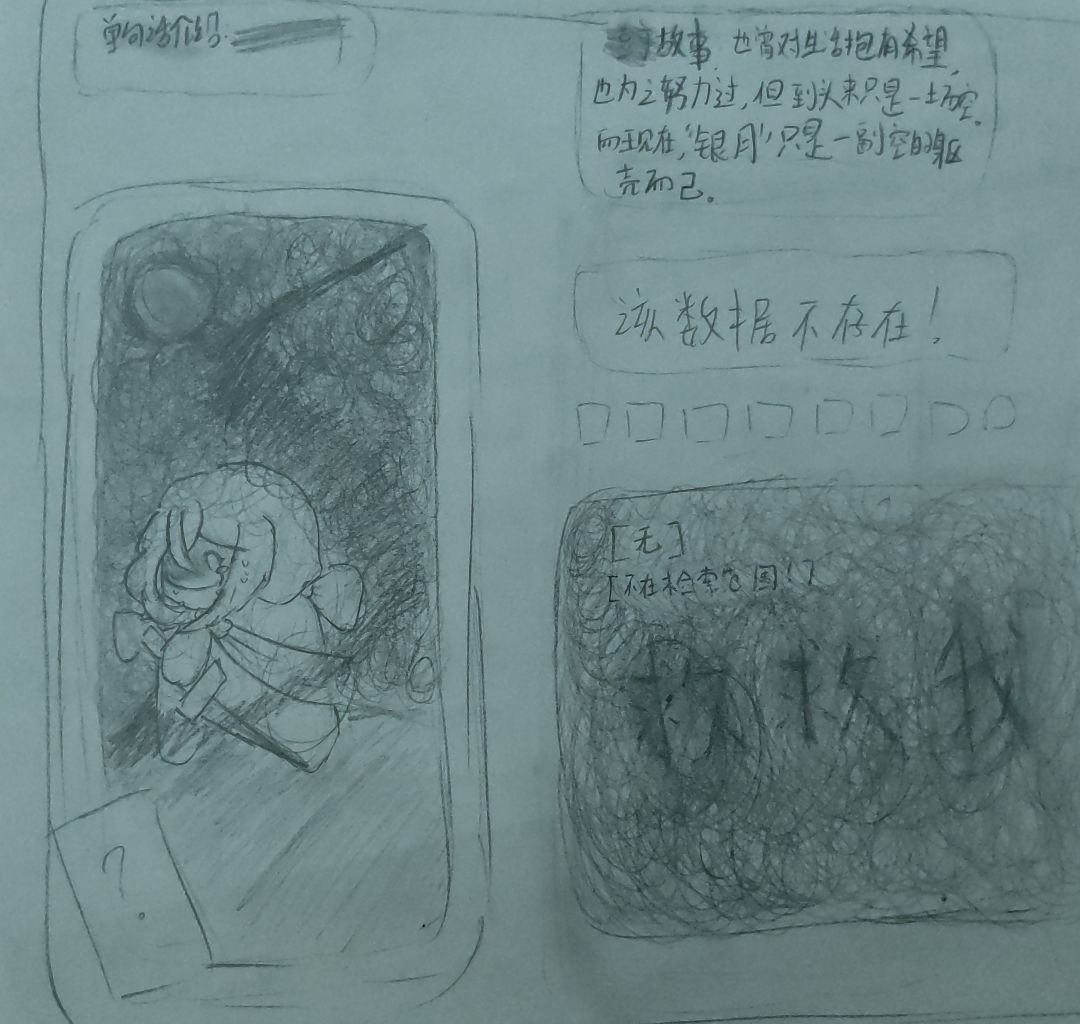 单句话介绍:
故事,也曾对生活抱有希望,
也为之努力过,但到头来只是一场空。
而现在,“银月”只是一副空的躯
壳而已。
该数据不存在!
[无]
[不在检索范围!]
救救我
?